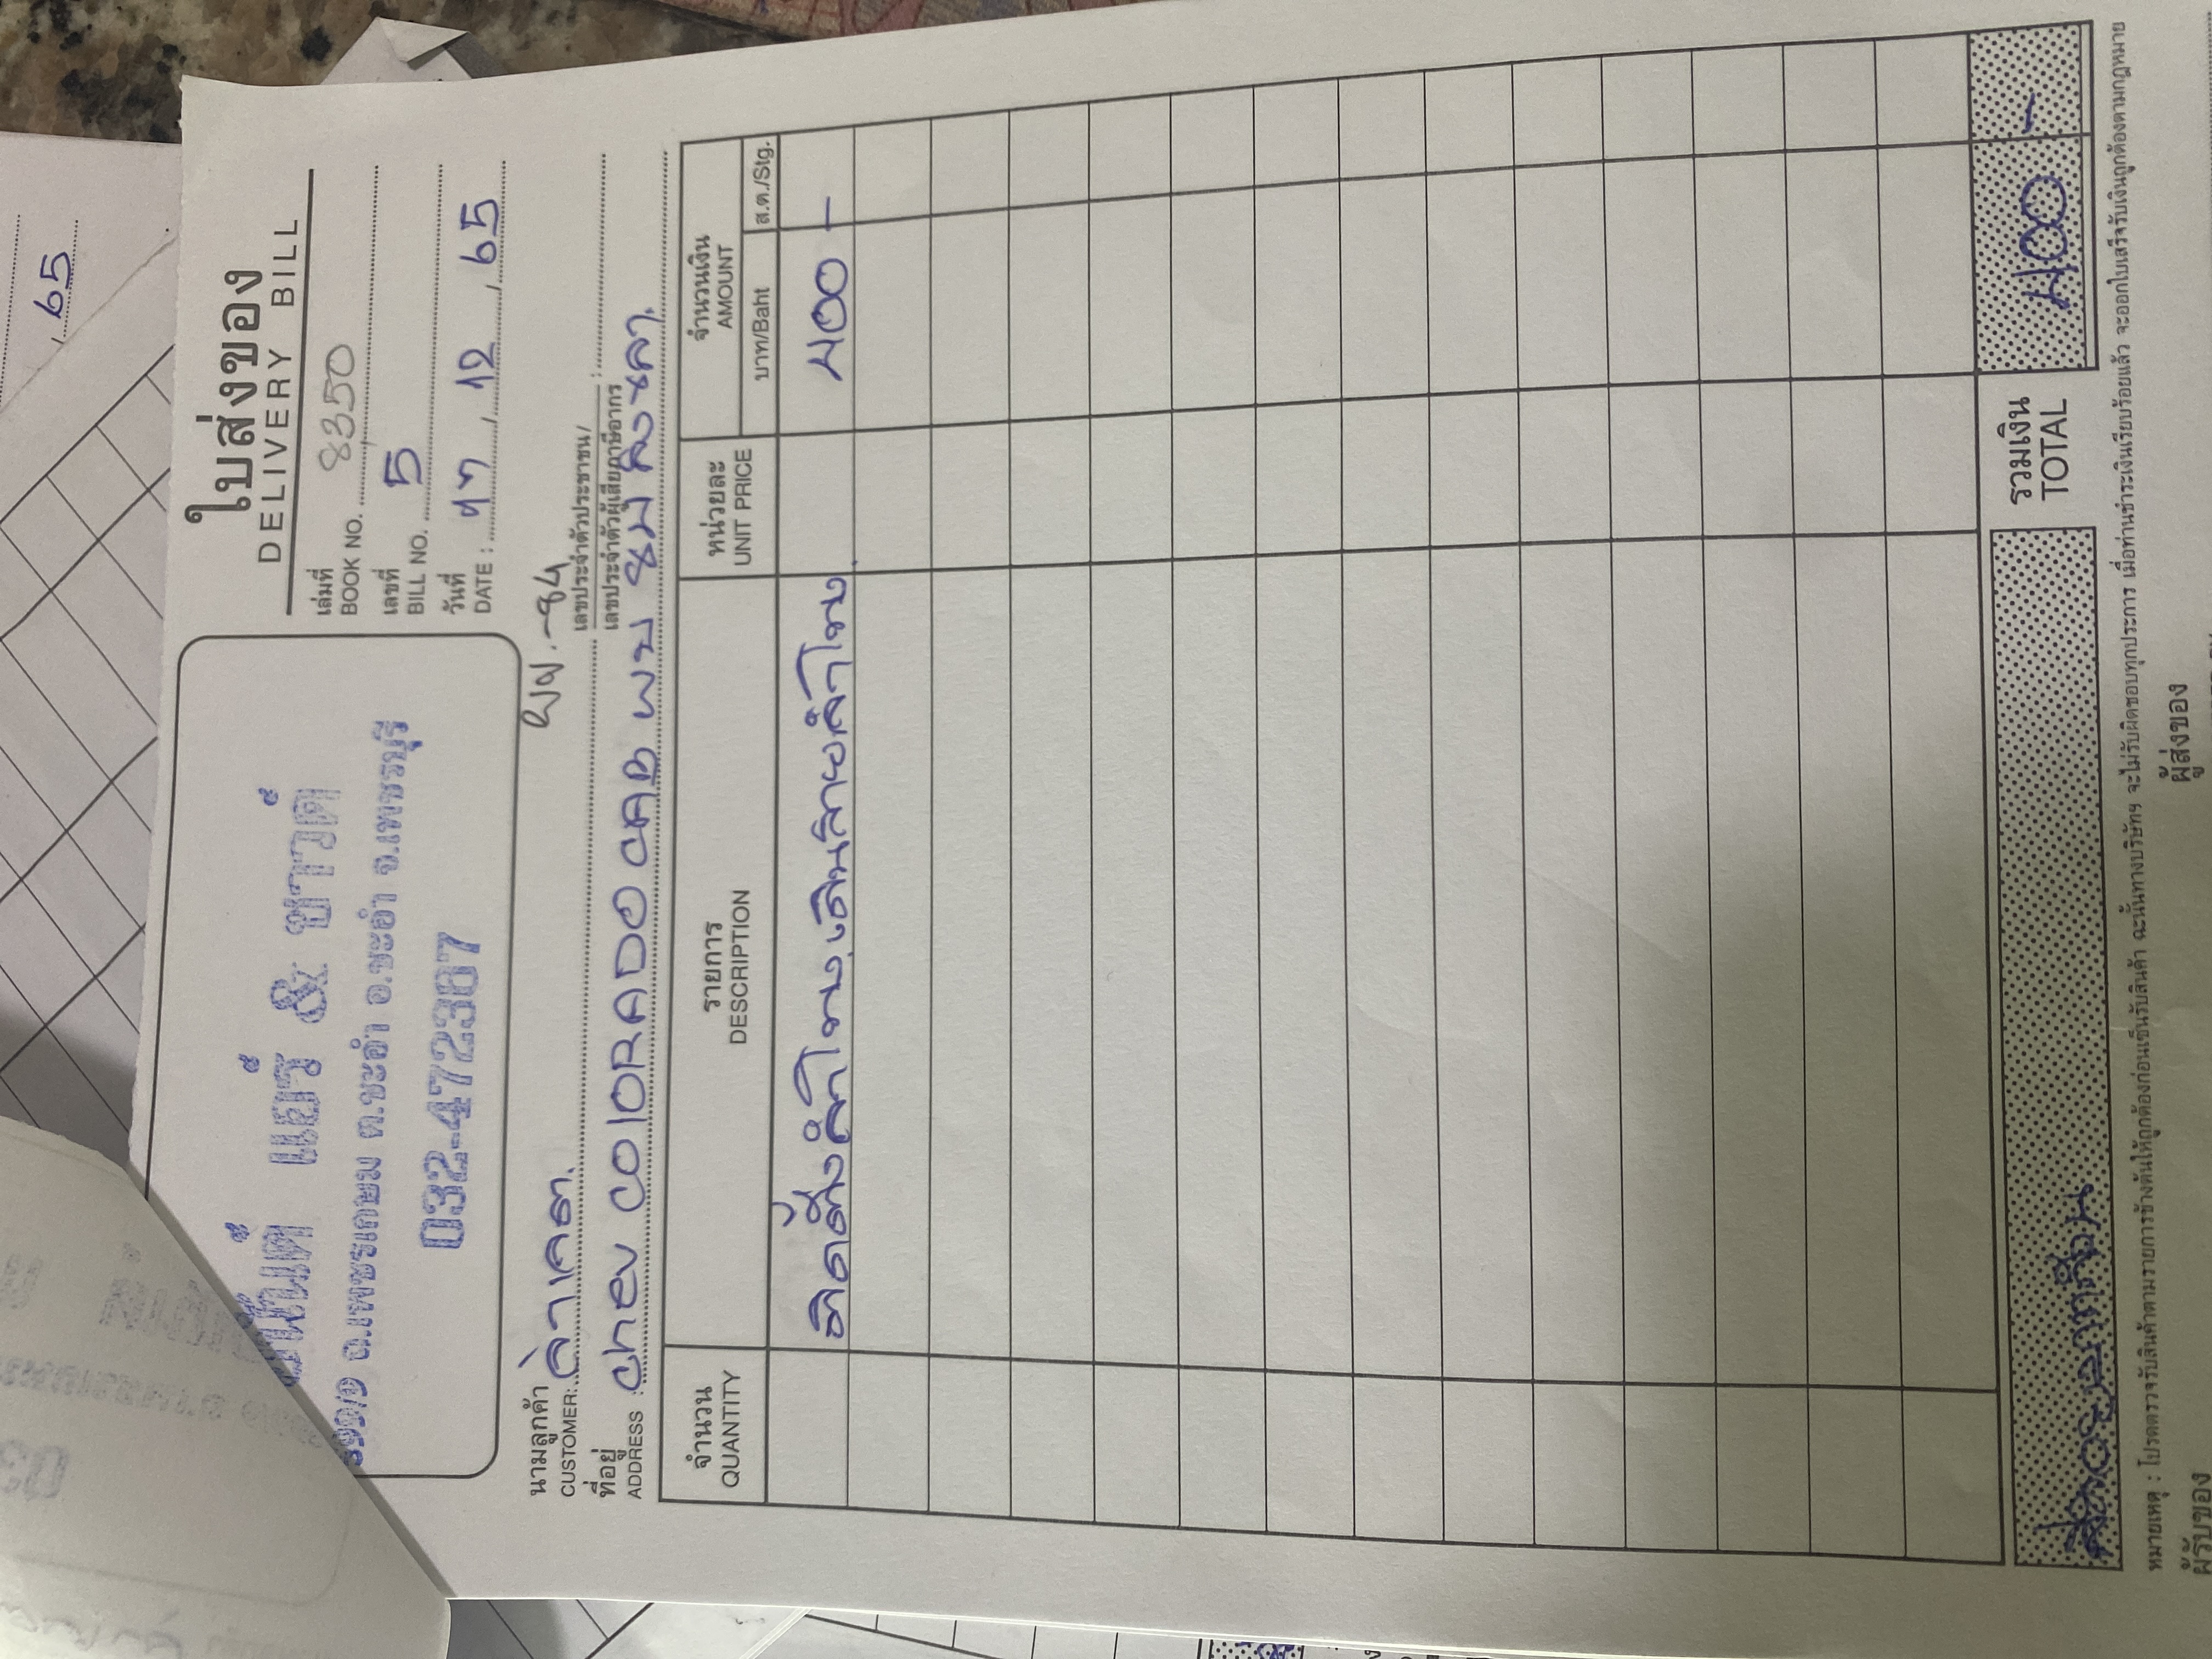 แอร์ & ซาวด์
ถ.เพชรเกษม ต.ชะอำ อ.ชะอำ จ.เพชรบุรี
032-472387
ใบส่งของ
DELIVERY BILL
เล่มที่
BOOK NO. 8350
เลขที่
BILL NO. 5
วันที่
DATE : 17 / 12 / 65
65
นามลูกค้า
CUSTOMER:
เลขประจำตัวประชาชน/
เลขประจำตัวผู้เสียภาษีอากร :
ที่อยู่
ADDRESS : chev COlORADO CAB
จำนวน
QUANTITY
รายการ
DESCRIPTION
หน่วยละ
UNIT PRICE
จำนวนเงิน
AMOUNT
บาท/Baht
ส.ต./Stg.
ติดตั้งลำโพง, เดินสายลำโพง 400 -
รวมเงิน
TOTAL
400 -
หมายเหตุ : โปรดตรวจรับสินค้าตามรายการข้างต้นให้ถูกต้องก่อนเซ็นรับสินค้า ฉะนั้นทางบริษัทฯ จะไม่รับผิดชอบทุกประการ เมื่อท่านชำระเงินเรียบร้อยแล้ว จะออกใบเสร็จรับเงินถูกต้องตามกฎหมาย
ผู้รับของ
ผู้ส่งของ